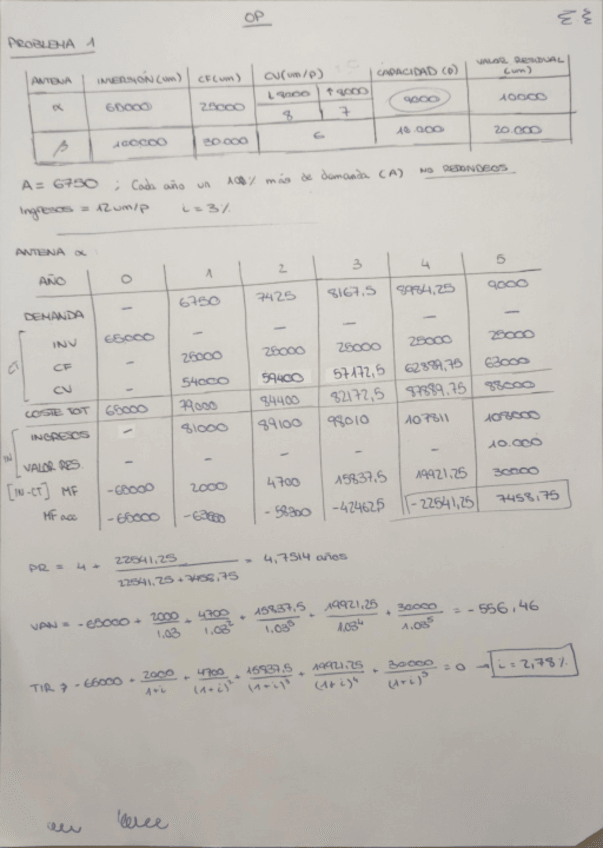 OP
PROBLEMA 1
ANTENA INVERSIÓN (um) CF (um) CV (um/p) CAPACIDAD (p) VALOR RESIDUAL (um)
↓8000 ↑8000
α 65000 25000 8 7 9000 10000
β 100000 30.000 6 10.000 20.000
A = 6750 ; Cada año un 10% más de demanda (A) NO REDONDEOS
Ingresos = 12 um/p i = 3%
ANTENA α
AÑO 0 1 2 3 4 5
DEMANDA – 6750 7425 8167,5 8984,25 9000
INV 65000 – – – – –
CF – 25000 25000 25000 25000 25000
CT
CV – 54000 59400 57172,5 62889,75 63000
COSTE TOT 65000 79000 84400 82172,5 87889,75 88000
INGRESOS – 81000 89100 98010 107811 108000
IN
VALOR RES. – – – – – 10.000
[IN-CT] MF -65000 2000 4700 15837,5 19921,25 30000
MF acc -65000 -63000 -58300 -42462,5 -22541,25 7458,75
PR = 4 + 22541,25 / 22541,25 + 7458,75 = 4,7514 años
VAN = -65000 + 2000/1.03 + 4700/1.03² + 15837,5/1.03³ + 19921,25/1.03⁴ + 30000/1.03⁵ = -556,46
TIR → -65000 + 2000/1+i + 4700/(1+i)² + 15837,5/(1+i)³ + 19921,25/(1+i)⁴ + 30000/(1+i)⁵ = 0 → i = 2,78%